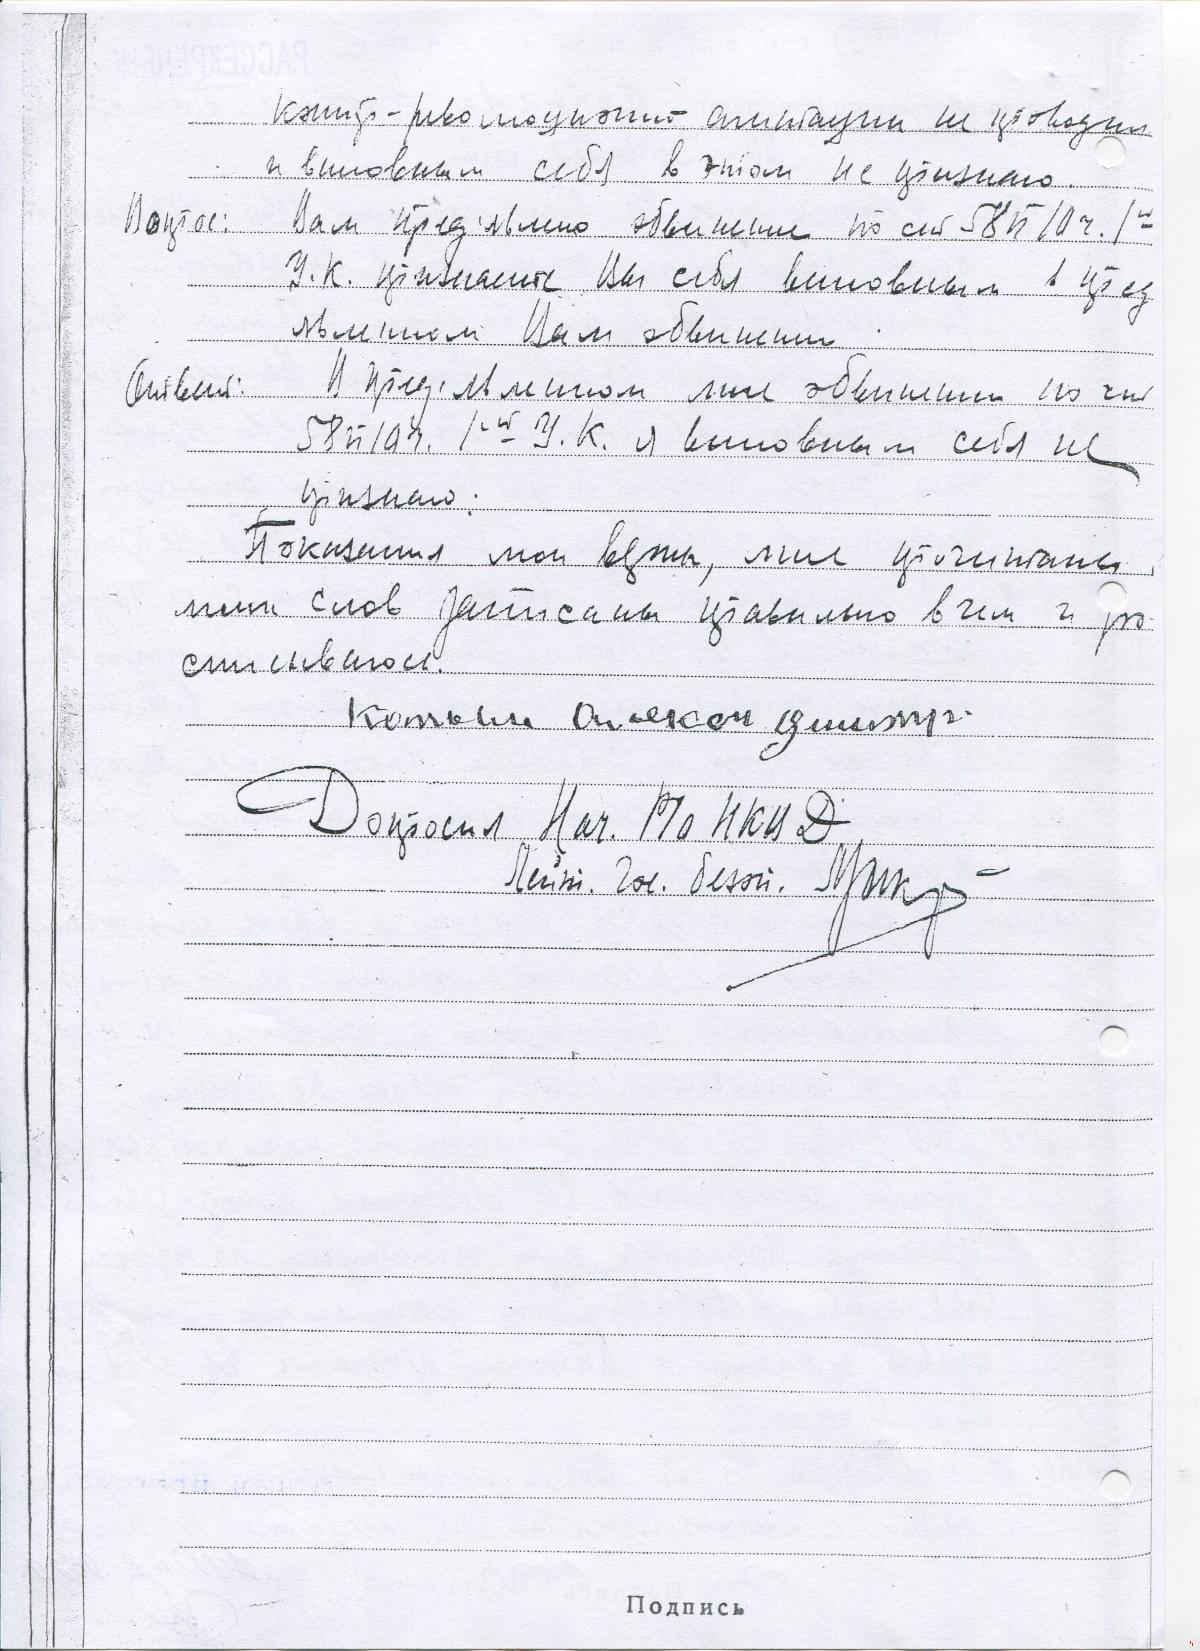 контр-революционной агитации не проводил
и виновным себя в этом не признаю.
Вопрос: Вам пред'явлено обвинение по ст 58 п/10 ч. 1-й
У.К. признаете Вы себя виновным в пред
явленном Вам обвинении
Ответ: В пред'явленном мне обвинении по ст
58 п/10 ч. 1-й У.К. я виновным себя не
признаю.
Показания мои верны, мне прочитаны
слов записаны правильно в чем и рас
писываюсь.
Допросил Нач. РО НКВД
Лейт. Гос. безоп.
Подпись
РАССЕКРЕЧЕНО